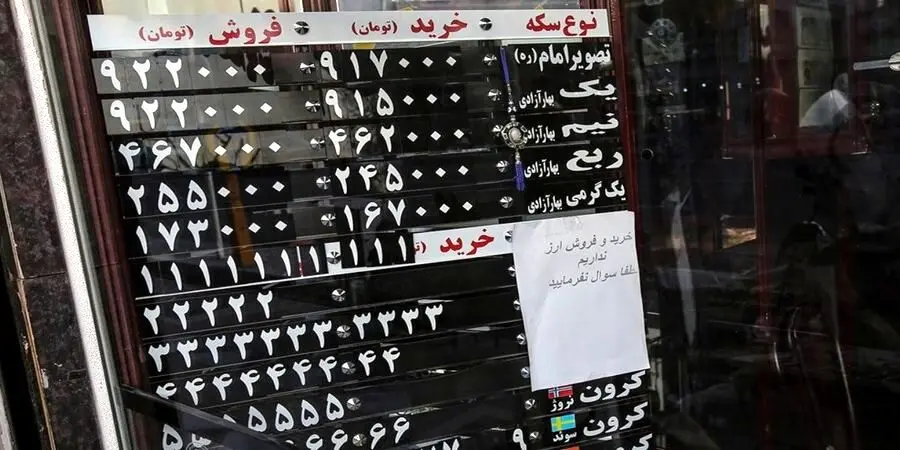 نوع سکه خرید (تومان) فروش (تومان)
تصویر امام (ره) ۹۱۷۰۰۰ ۹۲۲۰۰۰
یک بهارآزادی ۹۱۵۰۰۰ ۹۲۲۰۰۰
نیم بهارآزادی ۴۶۲۰۰۰ ۴۶۷۰۰۰
ربع بهارآزادی ۲۴۵۰۰۰ ۲۵۵۰۰۰
یک گرمی بهارآزادی ۱۶۷۰۰۰ ۱۷۳۰۰۰
خرید
۱۱۱ ۱۱۱۱۱۱۱
خرید و فروش ارز
نداریم
لطفا سوال نفرمایید
۲۲۲۲۲
۳۳۳۳ ۳۳۳۳۳۳
۴۴ ۴۴۴۴۴۴
کرون نروژ ۵۵۵۵
کرون سوئد ۹ ۶۶ ۶۶